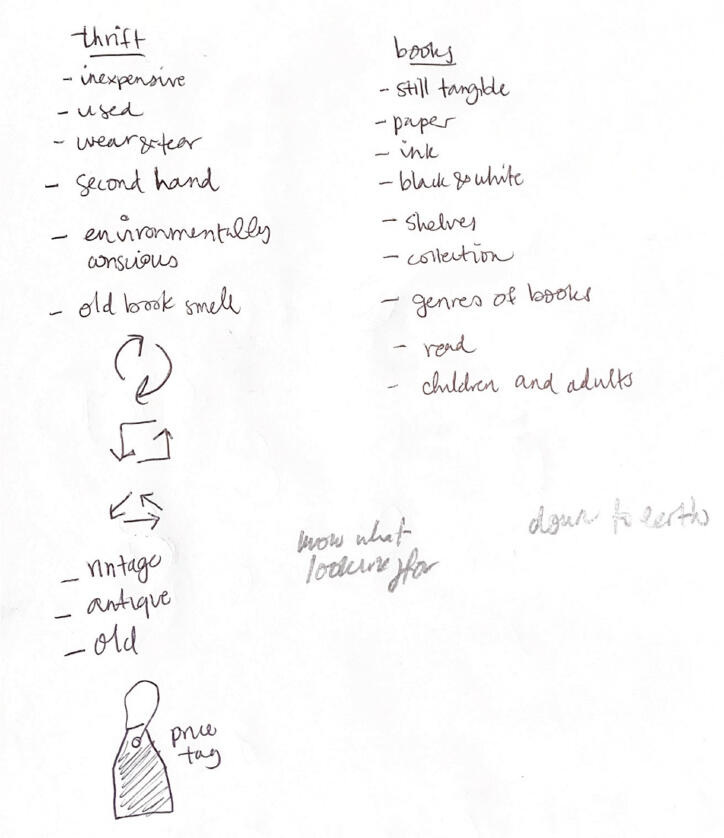 thrift
- inexpensive
- used
- wear & tear
- second hand
- environmentally
conscious
- old book smell
- vintage
- antique
- old
price
tag
books
- still tangible
- paper
- ink
- black & white
- shelves
- collection
- genres of books
- read
- children and adults
know what
looking for
down to earth